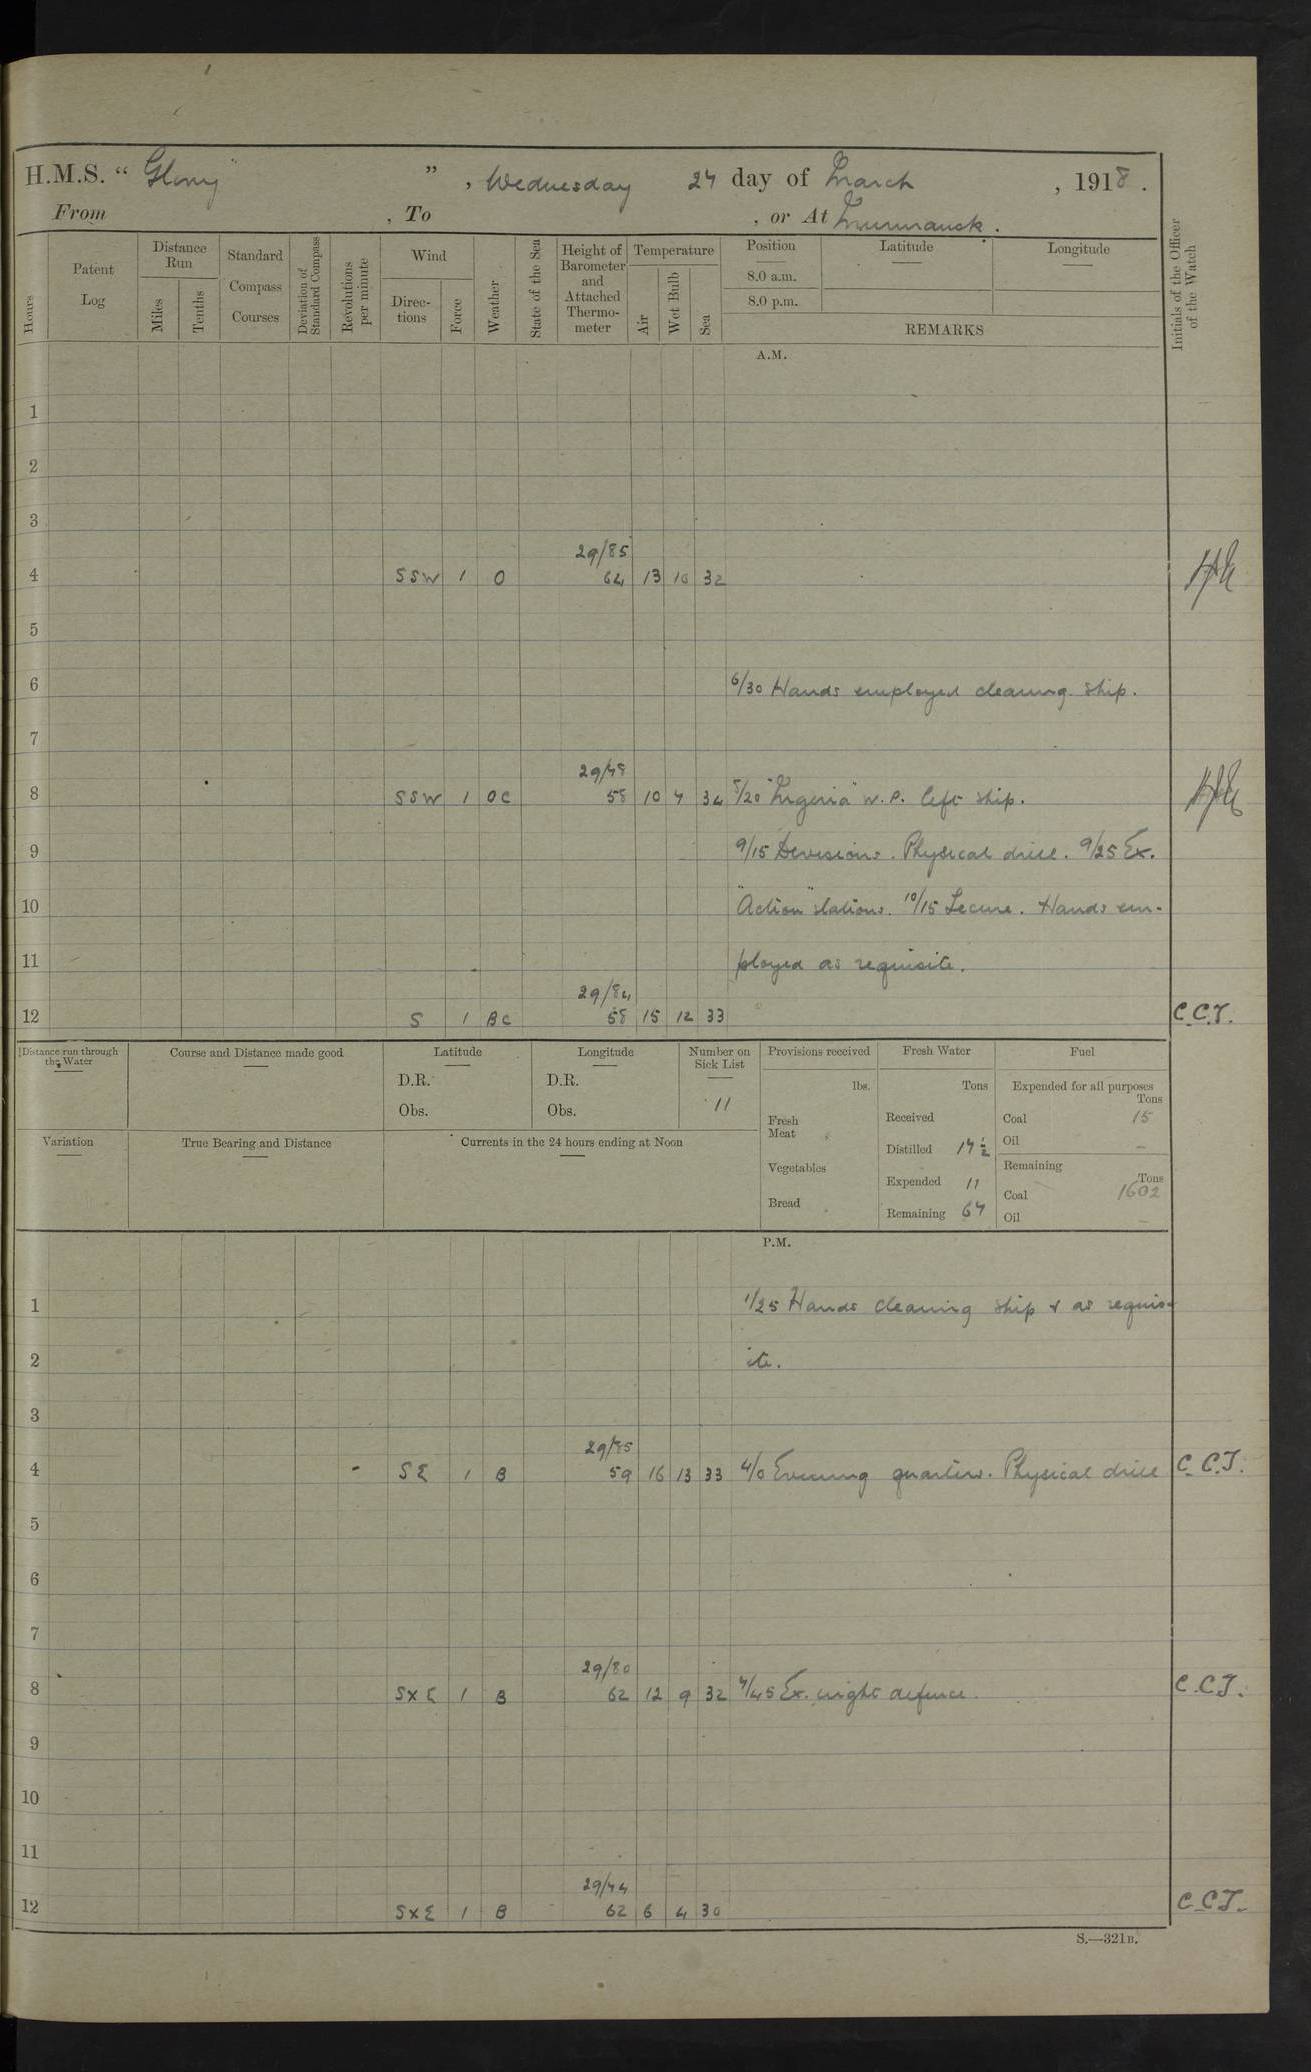 H.M.S. “ Glory ” , Wednesday 27 day of March , 1918 .
From , To , or At Murmansk .
Hours
Patent Log
Distance Run
Miles
Tenths
Standard Compass Courses
Deviation of Standard Compass
Revolutions per minute
Wind
Directions
Force
Weather
State of the Sea
Height of Barometer and Attached Thermometer
Temperature
Air
Wet Bulb
Sea
Position
8.0 a.m.
8.0 p.m.
Latitude
Longitude
REMARKS
Initials of the Officer of the Watch
A.M.
1
2
3
29/85
4 SSW 1 O 64 13 10 32
5
6 6/30 Hands employed cleaning ship.
7
29/78
8 SSW 1 OC 58 10 7 34 8/20 W. P. left ship.
9 9/15 Divisions. Physical drill. 9/25 Ex.
10 "Action" stations. 10/15 Secure. Hands em-
11 ployed as requisite.
29/84
12 S 1 BC 58 15 12 33 C.C.T.
Distance run through the Water
Course and Distance made good
Latitude
D.R.
Obs.
Longitude
D.R.
Obs.
Number on Sick List
11
Provisions received
lbs.
Fresh Meat
Vegetables
Bread
Fresh Water
Tons
Received
Distilled 17½
Expended 11
Remaining 67
Fuel
Expended for all purposes
Tons
Coal 15
Oil –
Remaining
Tons
Coal 1602
Oil –
Variation
True Bearing and Distance
Currents in the 24 hours ending at Noon
P.M.
1 1/25 Hands cleaning ship & as requis-
2 ite.
3
29/85
4 SE 1 B 59 16 13 33 4/0 Evening quarters. Physical drill C.C.T.
5
6
7
29/80
8 SxE 1 B 62 12 9 32 7/45 Ex. night defence. C.C.T.
9
10
11
29/74
12 SxE 1 B 62 6 4 30 C.C.T.
S.—321B.